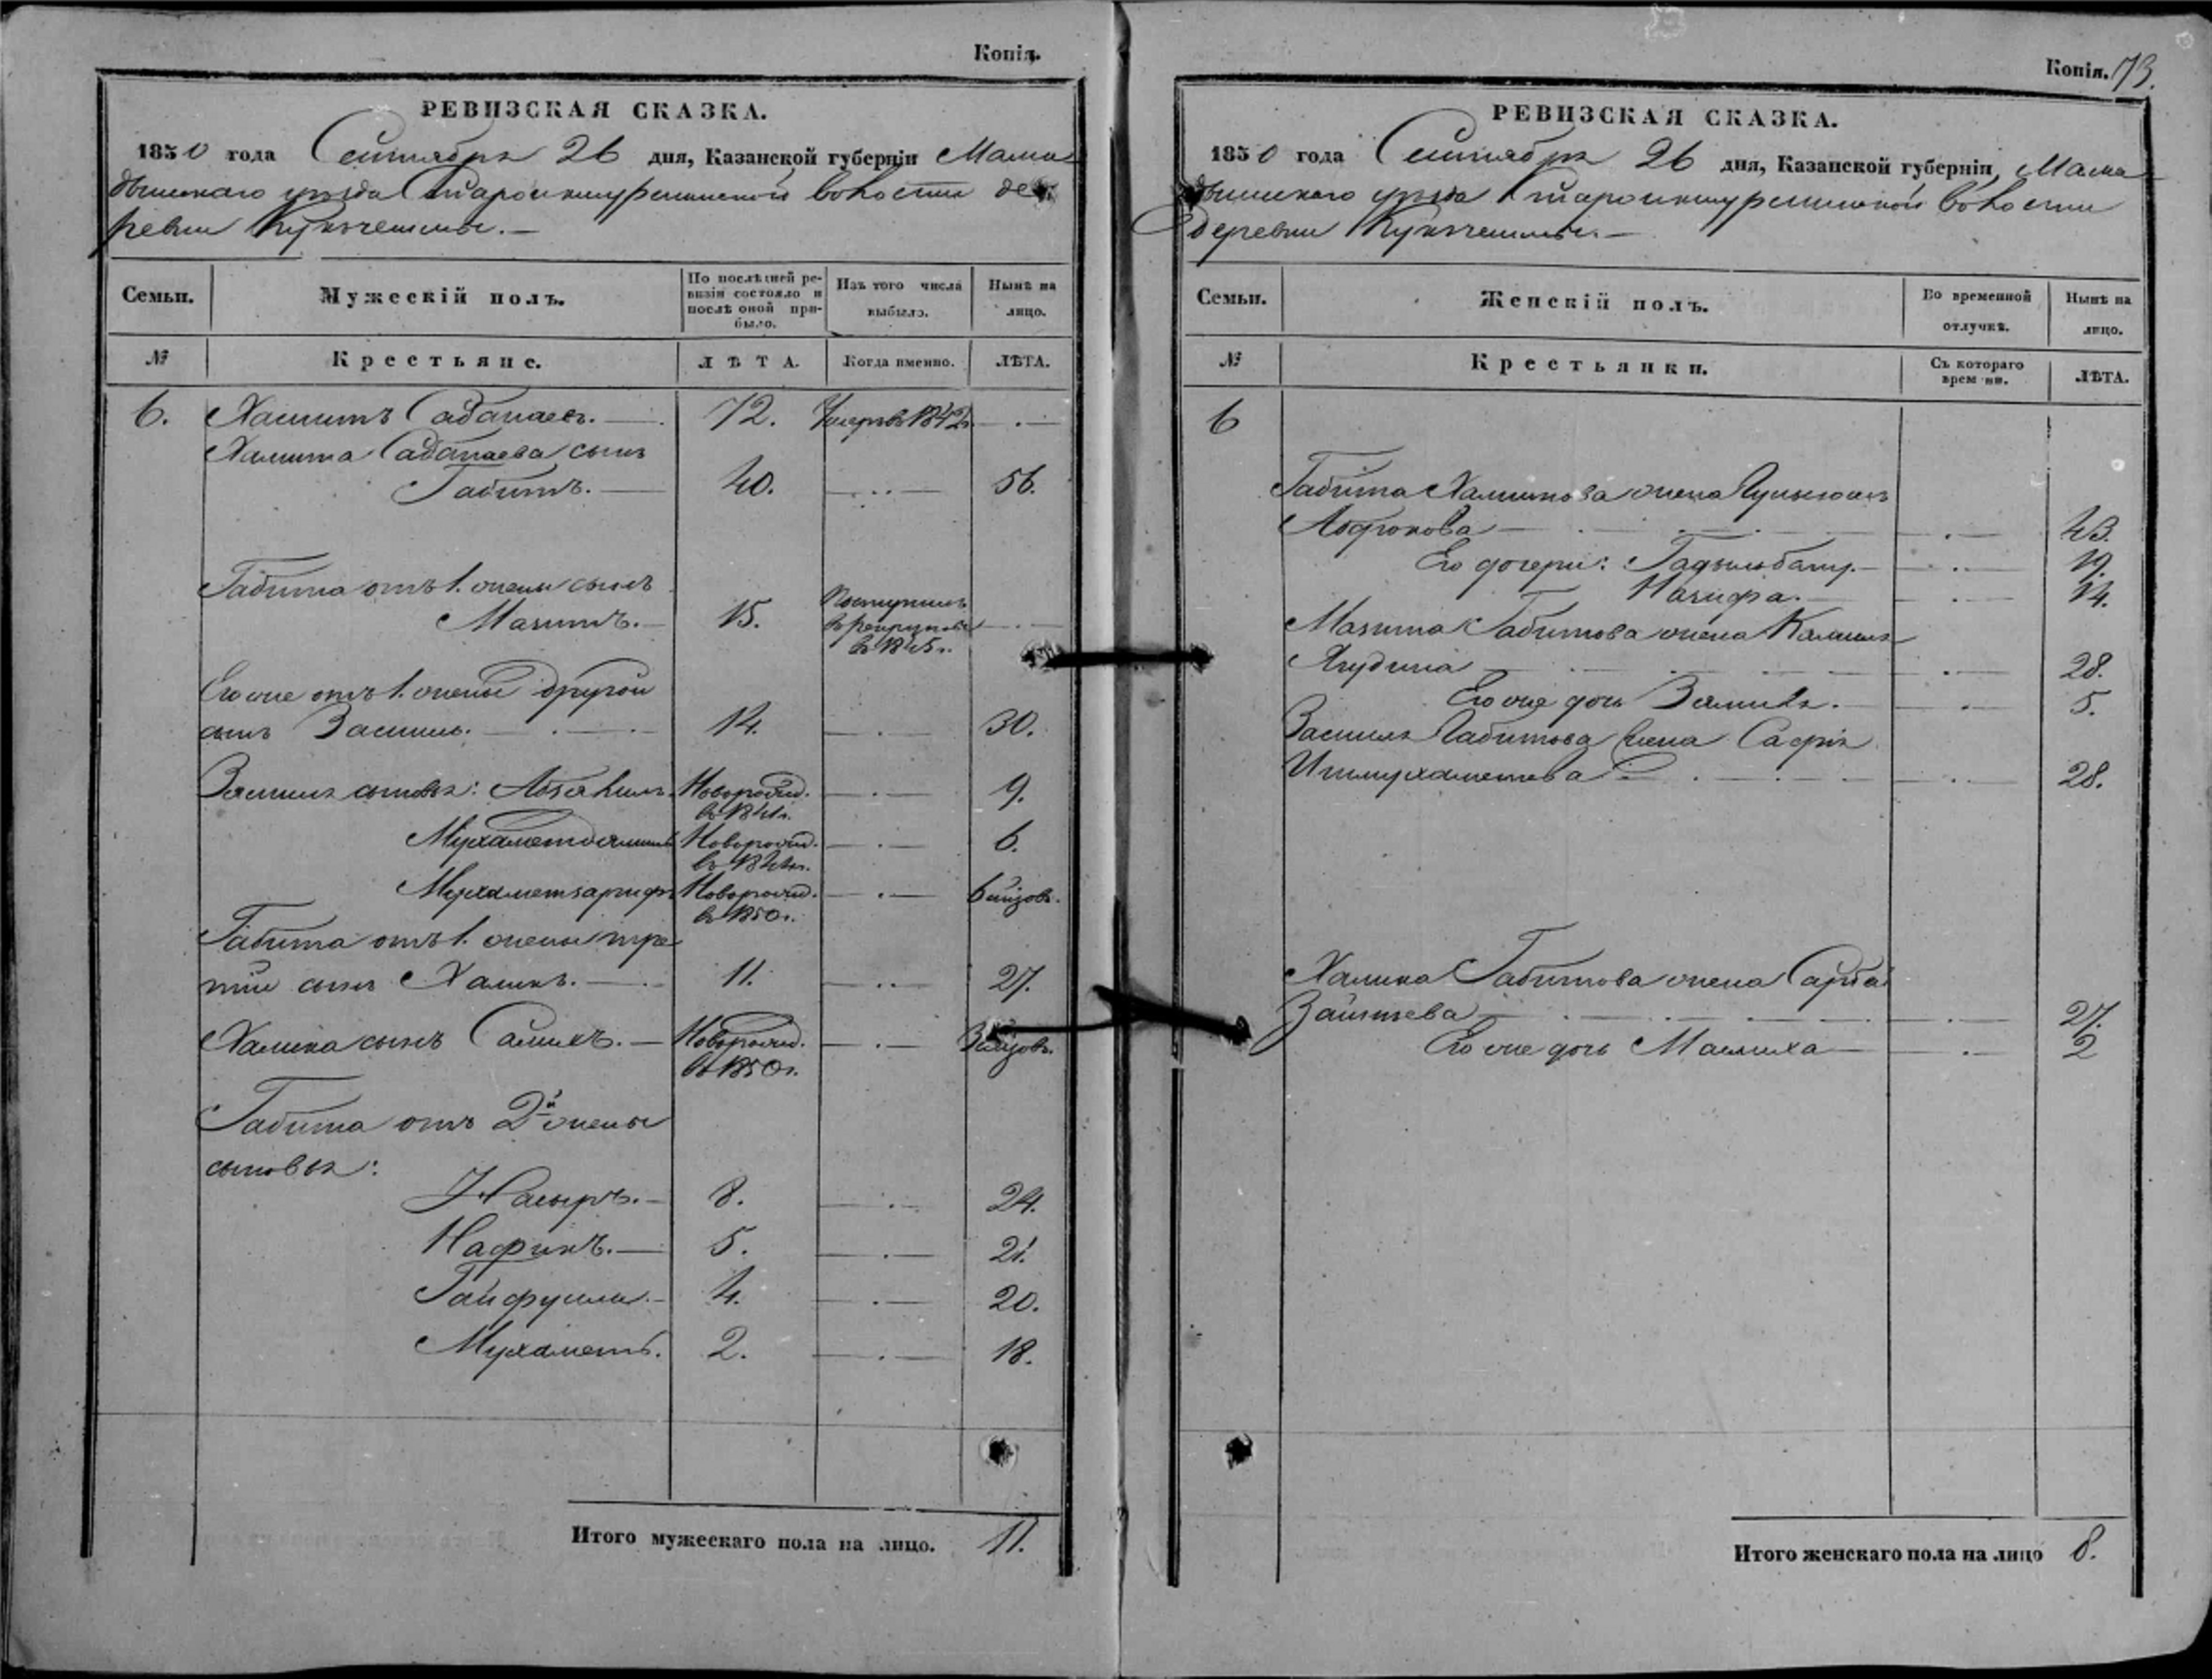 Копія.
РЕВИЗСКАЯ СКАЗКА.
1850 года Сентября 26 дня, Казанской губерніи Мама
дышскаго уѣзда волости де
ревни
Семьи. Мужескій полъ. По послѣдней ре-визіи состояло и послѣ оной при-было. Изъ того числа выбыло. Нынѣ на лицо.
№ Крестьяне. ЛѢТА. Когда именно. ЛѢТА.
6. Хамитъ 72. Умеръ въ 1842
Хамита сынъ
Габитъ. 40. 56.
Габита отъ 1. жены сынъ
Мазитъ. 15. Поступилъ в рекруты в 1845
Его же отъ 1. жены другой
сынъ Василь. 14. 30.
Василя сыновья: Новорожд. в 1841г. 9.
Новорожд. в 1844г. 6.
Мухаметзарифъ Новорожд. в 1850г.
Габита отъ 1. жены тре
тій сынъ Халикъ. 11. 27.
Халика сынъ Салихъ. Новорожд. в 1850г.
Габита отъ 2й жены
сыновья:
Насыръ. 8. 24.
Нафикъ. 5. 21.
Гайфулла. 4. 20.
Мухаметъ. 2. 18.
Итого мужескаго пола на лицо. 11.
Копія. 73.
РЕВИЗСКАЯ СКАЗКА.
1850 года Сентября 26 дня, Казанской губерніи, Мама
дышскаго уѣзда волости
деревни
Семьи. Женскій полъ. Во временной отлучкѣ. Нынѣ на лицо.
№ Крестьянки. Съ котораго времени. ЛѢТА.
6
Габита Хамитова жена
43.
Его дочери: 19.
Назифа. 14.
Мазита Габитова жена
Ягудина 28.
Его же дочь 5.
Василя Габитова жена Сафія
Ишмухаметева 28.
Халика Габитова жена
Заитева 27.
Его же дочь 2
Итого женскаго пола на лицо 8.